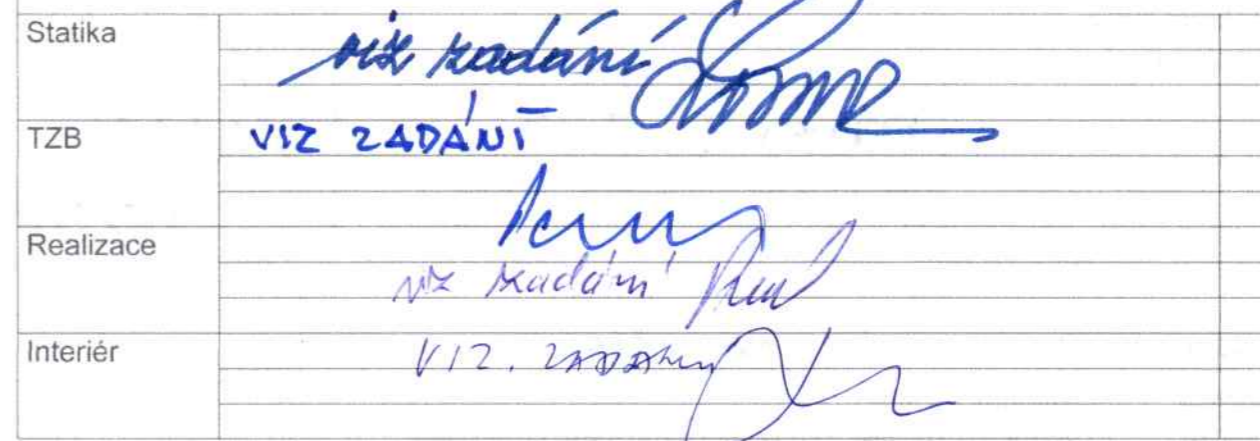 Statika viz zadání
TZB VIZ ZADÁNÍ
Realizace viz zadání
Interiér VIZ. ZADÁNÍ